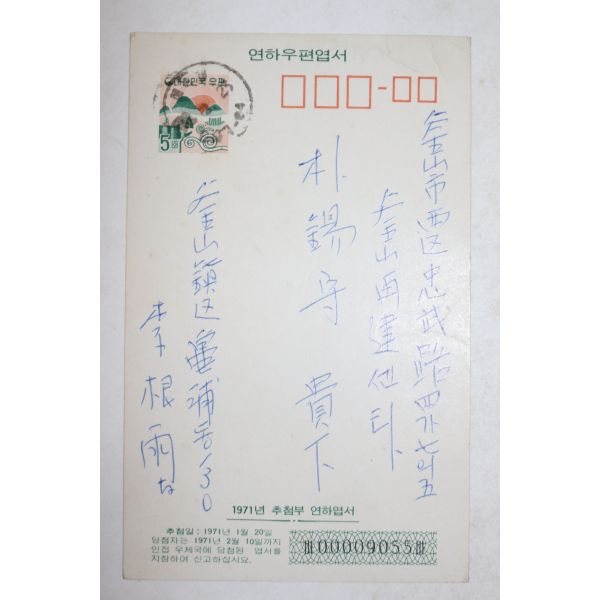 연하우편엽서
대한민국 우편
5
釜山市西区忠武路四가七의五
釜山再建센타
朴錫守 貴下
釜山鎭区 동130
李根雨
1971년 추첨부 연하엽서
추첨일 : 1971년 1월 20일
당첨자는 1971년 2월 10일까지
인접 우체국에 당첨된 엽서를
지참하여 신고하십시요.
00009055